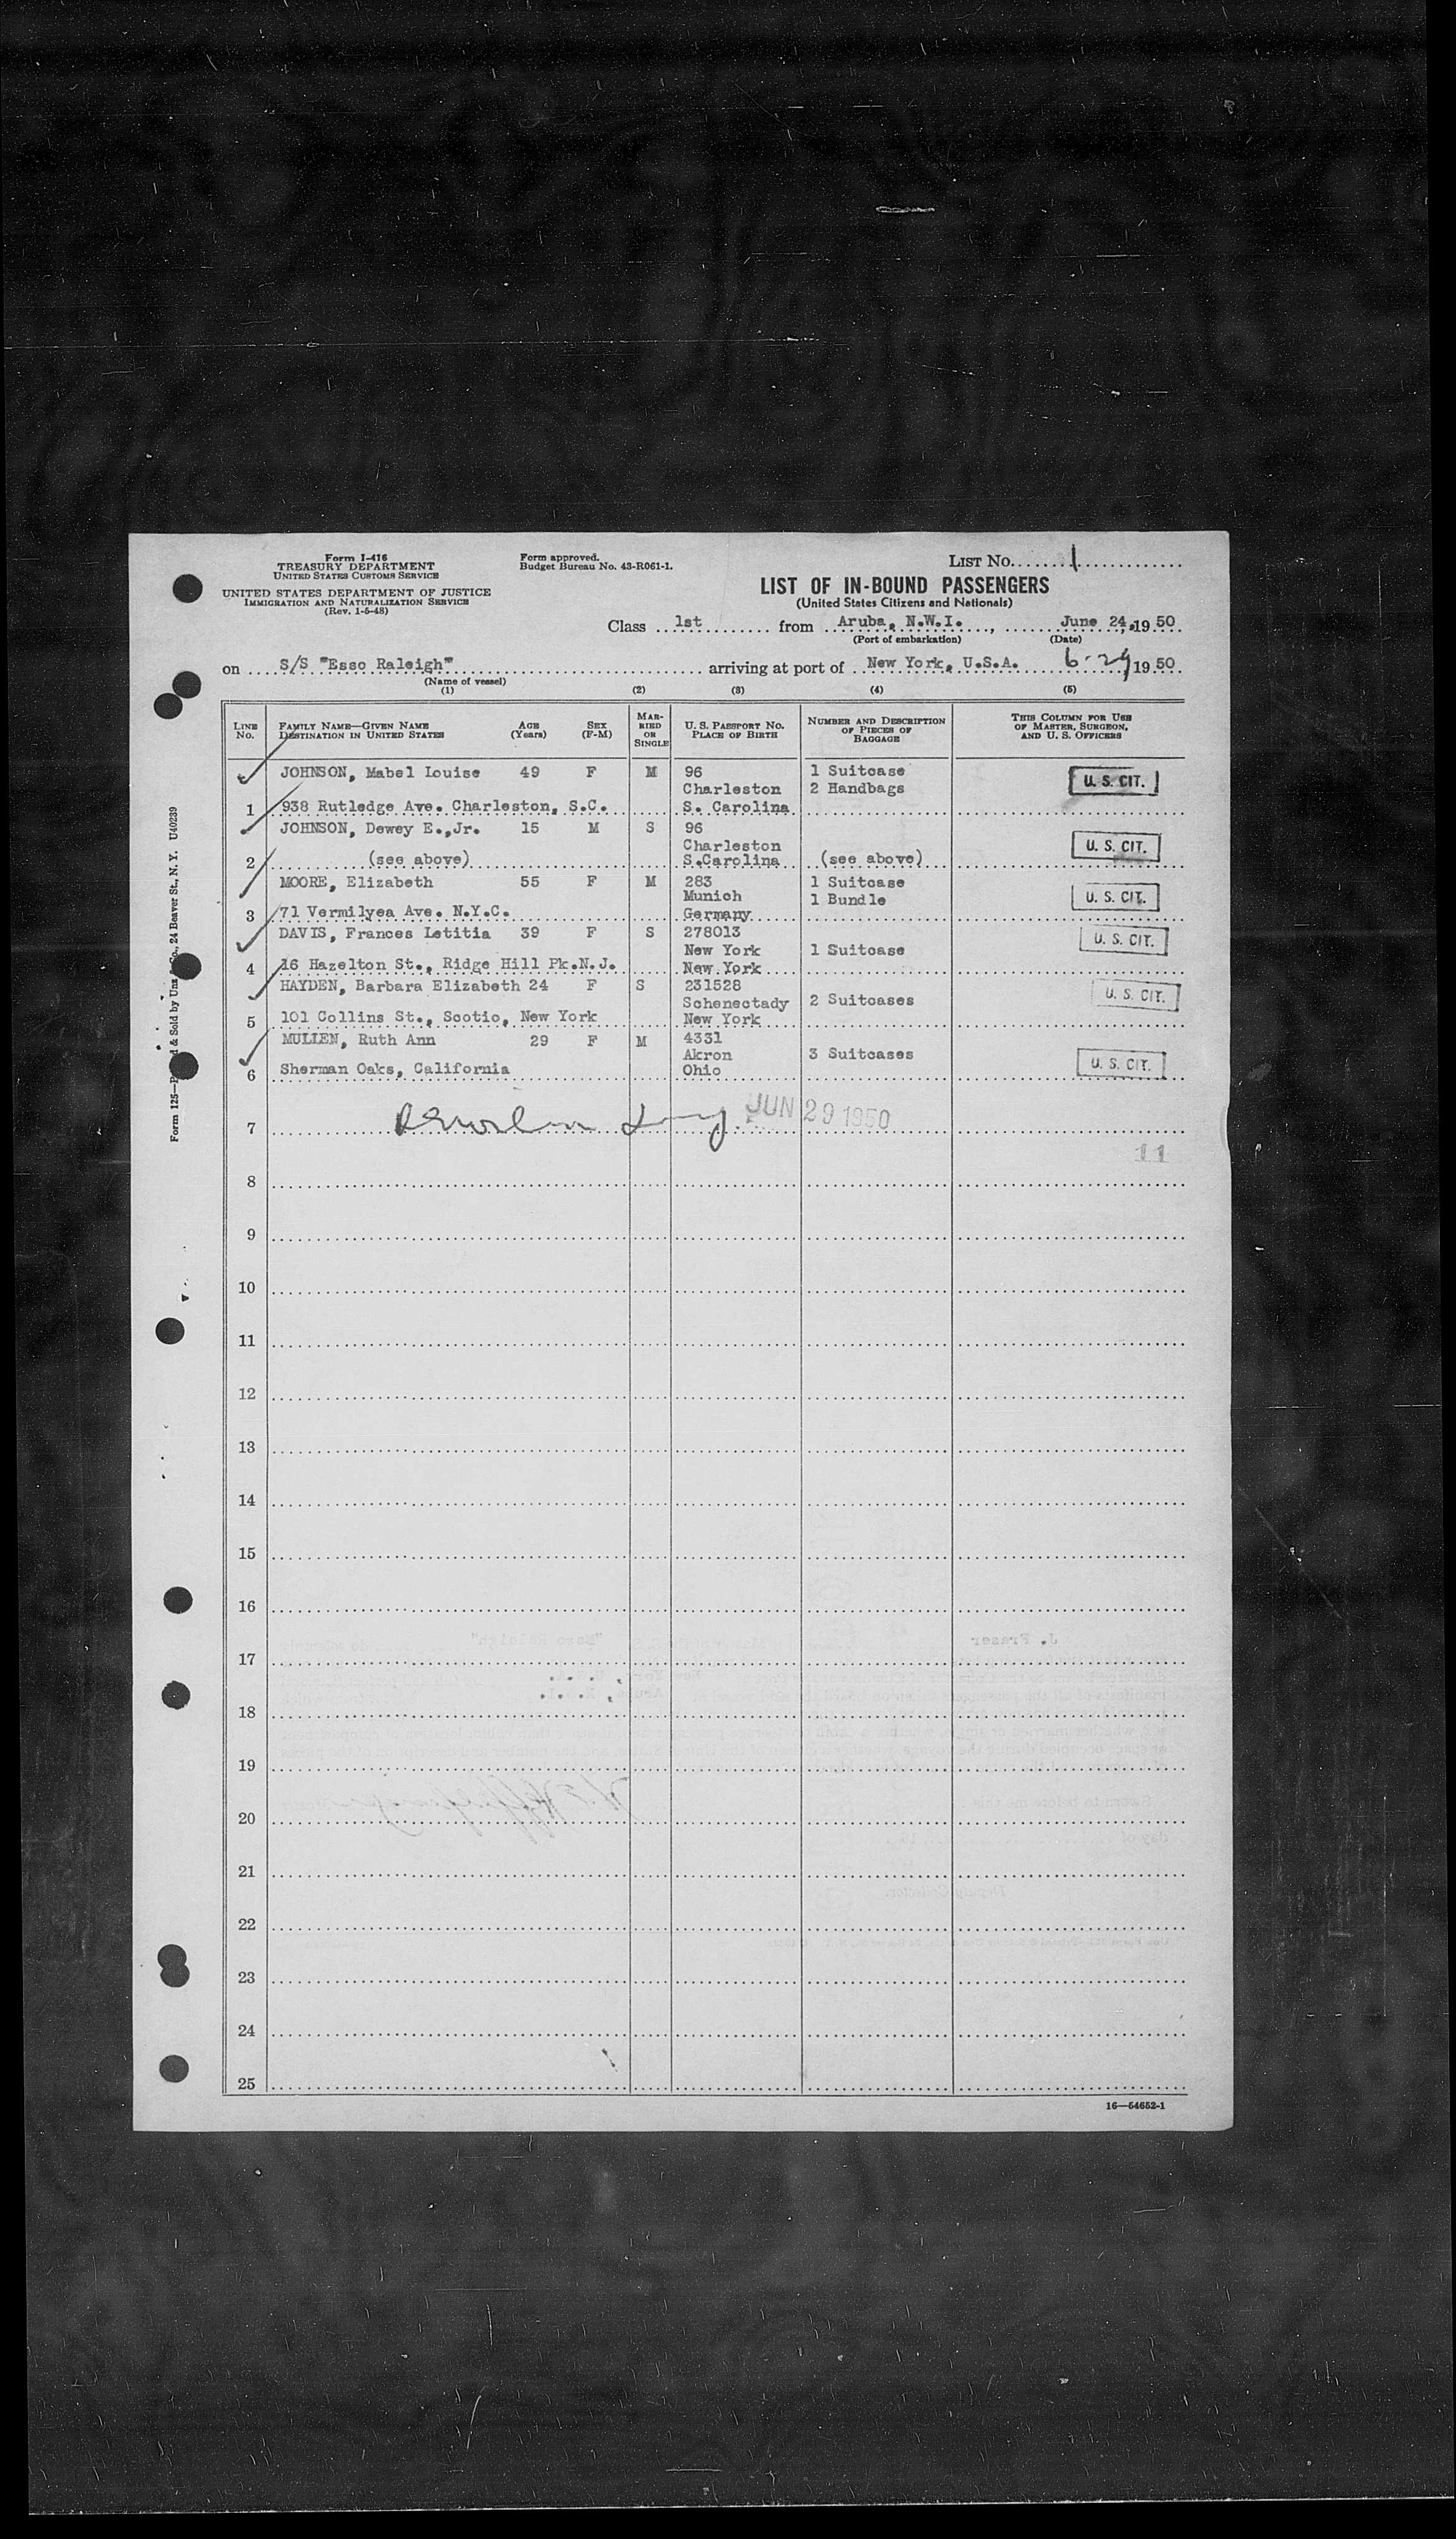 Form I-416
TREASURY DEPARTMENT
UNITED STATES CUSTOMS SERVICE
UNITED STATES DEPARTMENT OF JUSTICE
IMMIGRATION AND NATURALIZATION SERVICE
(Rev. 1-5-48)
Form approved.
Budget Bureau No. 43-R061-1.
LIST No. 1
LIST OF IN-BOUND PASSENGERS
(United States Citizens and Nationals)
Class 1st from Aruba, N.W.I., June 24, 1950
(Port of embarkation) (Date)
on S/S "Esso Raleigh" arriving at port of New York, U.S.A. 6-29, 1950
(Name of vessel)
(1) (2) (3) (4) (5)
LINE No.
FAMILY NAME—GIVEN NAME
DESTINATION IN UNITED STATES
AGE (Years)
SEX (F-M)
MARRIED OR SINGLE
U. S. PASSPORT NO.
PLACE OF BIRTH
NUMBER AND DESCRIPTION OF PIECES OF BAGGAGE
THIS COLUMN FOR USE OF MASTER, SURGEON, AND U. S. OFFICERS
JOHNSON, Mabel Louise 49 F M 96 1 Suitcase U. S. CIT.
Charleston 2 Handbags
1 938 Rutledge Ave. Charleston, S.C. S. Carolina
JOHNSON, Dewey E.,Jr. 15 M S 96
Charleston U. S. CIT.
2 (see above) S.Carolina (see above)
MOORE, Elizabeth 55 F M 283 1 Suitcase
Munich 1 Bundle U. S. CIT.
3 71 Vermilyea Ave. N.Y.C. Germany
DAVIS, Frances Letitia 39 F S 278013 U. S. CIT.
New York 1 Suitcase
4 16 Hazelton St., Ridge Hill Pk.N.J. New York
HAYDEN, Barbara Elizabeth 24 F S 231528 U. S. CIT.
Schenectady 2 Suitcases
5 101 Collins St., Scotio, New York New York
MULLEN, Ruth Ann 29 F M 4331
Akron 3 Suitcases U. S. CIT.
6 Sherman Oaks, California Ohio
JUN 29 1950
7
11
8
9
10
11
12
13
14
15
16
17
18
19
20
21
22
23
24
25
16—54652-1
24 Beaver St., N. Y. U40239